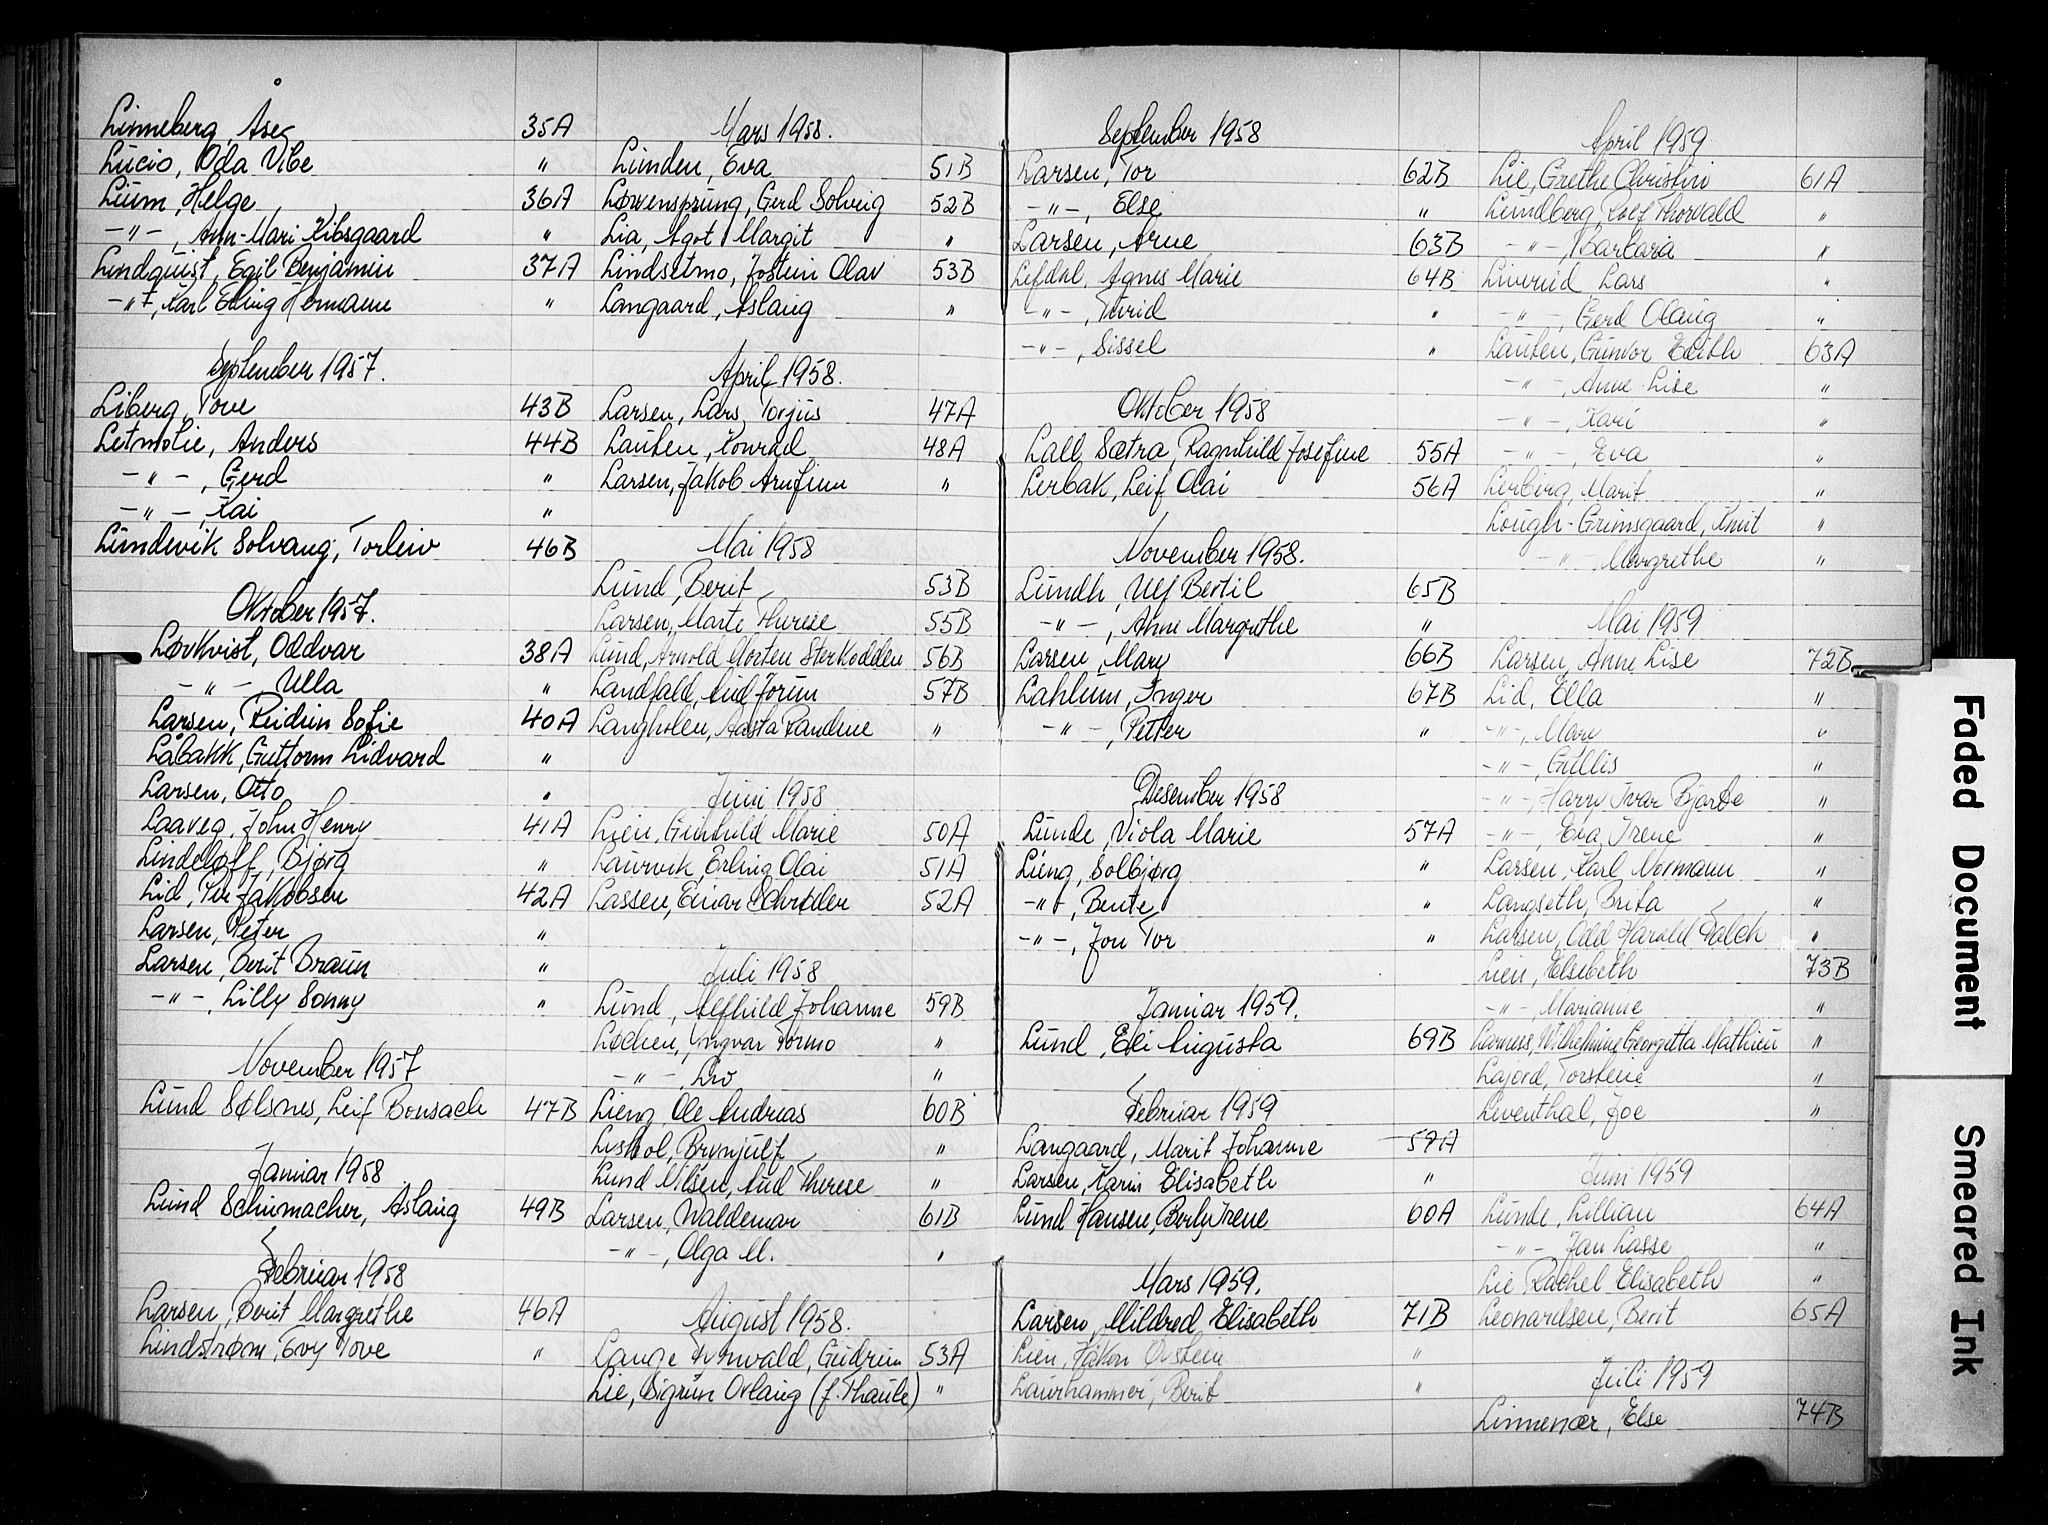 Linneberg, Åse 35A
Lucio, Oda Vibe "
Lium, Helge 36A
-"-, Ann-Mari Kibsgaard "
Lindquist, Egil Benjamin 37A
-"-, Karl Erling Hermann "
September 1957.
Liberg, Tove 43B
Letmolie, Anders 44B
-"-, Gerd "
-"-, Kai "
Lundevik Solvang, Torleiv 46B
Oktober 1957.
Løvkvist, Oddvar 38A
-"-, Ulla "
Larsen, Reidun Sofie 40A
Låbakk, Guttorm Lidvard "
Larsen, Otto "
Laaveg, John Henry 41A
Lindeløff, Bjørg "
Lid, Per Jakobsen 42A
Larsen, Peter "
Larsen, Berit Braun "
-"-, Lilly Sonny "
November 1957
Lund Sølsnes, Leif Bonsach 47B
Januar 1958
Lund Schumacher, Aslaug 49B
Februar 1958
Larsen, Berit Margrethe 46A
Lindstrøm, Evy Tove "
Mars 1958.
Lunden, Eva 51B
Løvensprung, Gerd Solveig 52B
Lia, Agot Margit "
Lindsetmo, Jostein Olav 53B
Langaard, Aslaug "
April 1958.
Larsen, Lars Torjus 47A
Lauten, Konrad 48A
Larsen, Jakob Arnfinn "
Mai 1958
Lund, Berit 53B
Larsen, Marte Therese 55B
Lund, Arnold Morten Sterkodden 56B
Landfald, Aud Jorun 57B
Langholen, Aasta Randine "
Juni 1958
Lien, Gunhild Marie 50A
Laurvik, Erling Olai 51A
Lassen, Einar Schrøder 52A
Juli 1958
Lund, Alfhild Johanne 59B
Løchen, Yngvar Tormo "
-"-, Liv "
Lieng, Ole Andreas 60B
Brynjulf "
Lund Nilsen, Aud Therese "
Larsen, Waldemar 61B
-"-, Olga M. "
August 1958.
Lange Gudrun 53A
Lie, Sigrun Orlaug (f. Thaule) "
September 1958
Larsen, Tor 62B
-"-, Else "
Larsen, Arne 63B
Lefdal, Agnes Marie 64B
-"-, Turid "
-"-, Sissel "
Oktober 1958
Lall Sætra, Ragnhild Josefine 55A
Lerbak, Leif Olai 56A
November 1958.
Lundh, Ulf Bertil 65B
-"-, Anne Margrethe "
Larsen, Mary 66B
Lahlum, Inger 67B
-"-, Petter "
Desember 1958
Lunde, Viola Marie 57A
Lieng, Solbjørg "
-"-, Bente "
-"-, Jon Tor "
Januar 1959.
Lund, Eli Augusta 69B
Februar 1959
Langaard, Marit Johanne 59A
Larsen, Karin Elisabeth "
Lund Hansen, Berly Irene 60A
Mars 1959.
Larsen, Mildred Elisabeth 71B
Lien, Håkon Øistein "
Laurhammer, Berit "
April 1959
Lie, Grethe Christin 61A
Lundberg, Rolf Thorvald "
-"-, Barbara "
Liverud Lars "
-"-, Gerd Olaug "
Lauten, Gunvor Edith 63A
-"-, Anne Lise "
-"-, Kari "
-"-, Eva "
Lerberg, Marit "
Lough-Grimsgaard, Knut "
-"-, Margrethe "
Mai 1959
Larsen, Anne Lise 72B
Lid, Ella "
-"-, Mary "
-"-, Gullis "
-"-, Harry Ivar Bjarte "
-"-, Eva Irene "
Larsen, Karl Normann "
Langseth, Brita "
Larsen, Odd Harald Falch "
Lien, Elsebeth 73B
-"-, Marianne "
Wilhelmine Georgetta Mathieu "
Lajord, Torsteine "
Leventhal, Joe "
Juni 1959
Lunde, Lillian 64A
-"-, Jan Lasse "
Lie Rachel Elisabeth "
Leonardsen, Berit 65A
Juli 1959
Linnenær, Else 74B
Faded Document
Smeared Ink